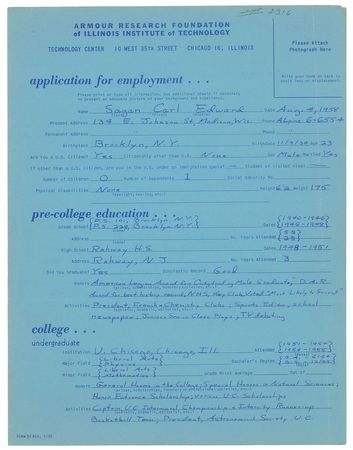 2316
ARMOUR RESEARCH FOUNDATION
of ILLINOIS INSTITUTE of TECHNOLOGY
TECHNOLOGY CENTER 10 WEST 35TH STREET CHICAGO 16, ILLINOIS
Please Attach
Photograph Here
application for employment . . .
Please print or type all information. Use additional sheets if necessary
to present an adequate picture of your background and experience.
Write your name on back to
avoid loss or misplacement.
Name Sagan Carl Edward Date Aug. 4, 1958
Present Address 134 E. Johnson St, Madison, Wis. Phone Alpine 6-6554
Permanent Address Phone
Birthplace Brooklyn, N.Y. Birthdate 11/9/34 Age 23
Are you a U.S. citizen? Yes Citizenship other than U.S. None Sex Male Married Yes
If other than a U.S. citizen, are you in the U.S. under an immigration quota? Student or visitor visa?
Number of Children 0 Number of Dependents 1 Social Security No.
Physical Disabilities None Height 6'2 Weight 175
(eyesight, hearing, etc.)
pre-college education . . .
Grade School P.S. 101, Brooklyn N.Y. Dates
P.S. 228, Brooklyn N.Y.
Address No. Years Attended
High School Rahway H.S. Dates 1948-1951
Address Rahway, N.J. No. Years Attended 3
Did You Graduate? Yes Scholastic Record Good
Honors American Legion Award for Outstanding Male Graduate, D.A.R.
Award for best history record, NHS, Key Club, Voted "Most Likely to Succeed"
Activities President, French & Chemistry Clubs, Sports Editor, school
newspaper; Junior & Senior Class Plays, TV debating
college . . .
undergraduate
Institution U. Chicago, Chicago, Ill. Attended
Major Field Liberal Arts Physics Bachelor's Degree
Minor Field Liberal Arts Mathematics Grade Point Average out of
Honors General Honors in the College; Special Honors in Natural Sciences;
Honor Entrance Scholarships, various U.C. Scholarships
Activities Captain, U.C. Intramural Championship & Intercity Runnerup
Basketball Team; President, Astronomical Society, U.C.